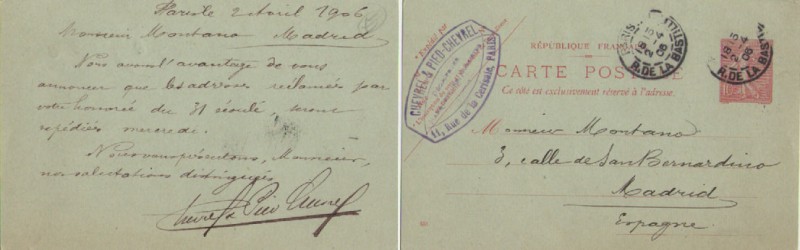 Paris le 2 Avril 1906
Monsieur Montano Madrid
Nous avons l'avantage de vous
annoncer que les adresses réclamées par
votre honorée du 31 écoulé, seront
expédiées mercredi.
Nous vous présentons, Monsieur,
nos salutations distinguées
CHEVREL & PIED-CHEVREL
11, Rue de la Cerisaie, PARIS
RÉPUBLIQUE FRAN
CARTE POSTALE
Ce côté est exclusivement réservé à l'adresse.
R. DE LA BASTILLE
2 -4 06
R. DE LA BAS
2 -4 06
Monsieur Montano
3, calle de San Bernardino
Madrid
Espagne